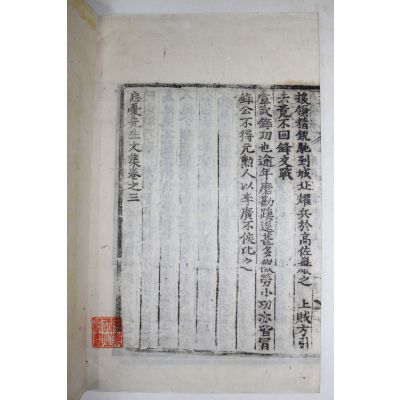 援領精銳馳到城北耀兵於高佐○之 上賊方引
去竟不回鋒交戰
宣武錄功也逾年磨勘蹊逕甚多微勞小功亦皆冐
錄公不得元勲人以李廣不侯比之
忘憂先生文集卷之三